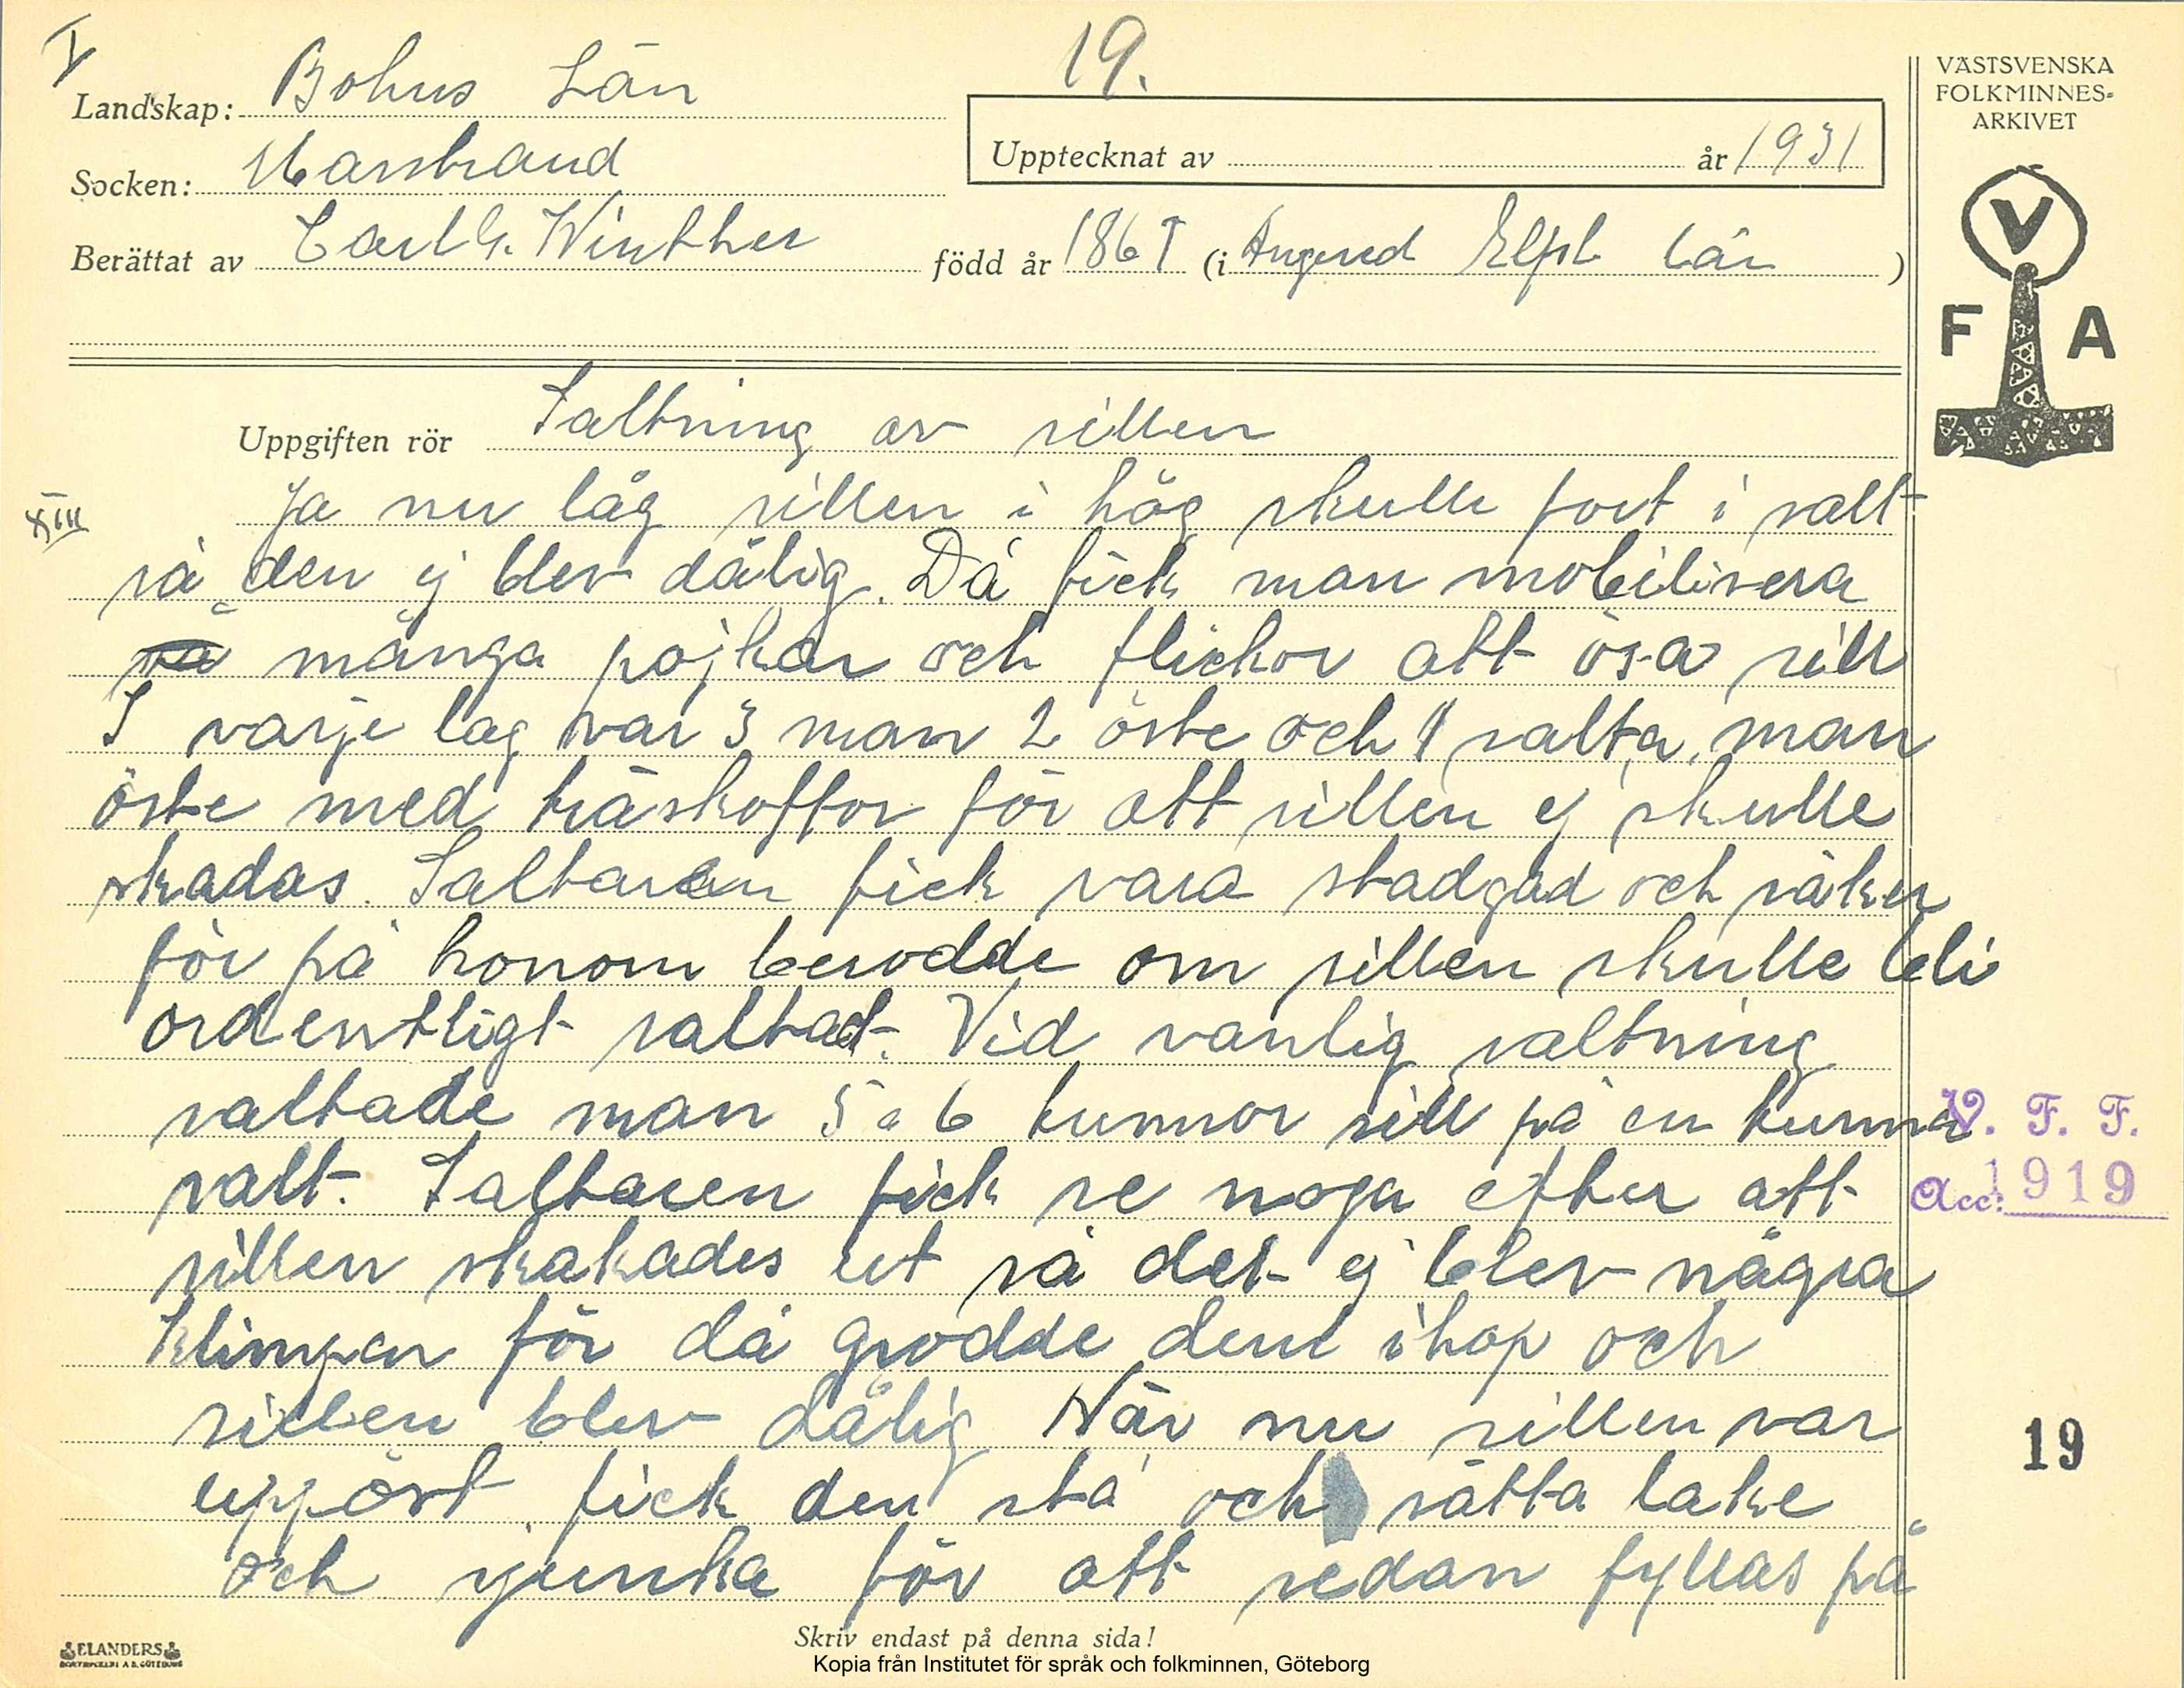 I
19.
Landskap: Bohus Län
Upptecknat av år 1931
Socken: Marstrand
Berättat av Carl G. Winther född år 1867 (i Angered Elfsb Län )
VÄSTSVENSKA
FOLKMINNES-
ARKIVET
V
F A
Uppgiften rör Saltning av sillen
XIII
Ja nu låg sillen i hög skulle fort i salt
så den ej blev dålig. Då fick man mobilisera
så många pojkar och flickor att ösa sill
I varje lag var 3 man 2 öste och 1 salta, man
öste med träskofflor för att sillen ej skulle
skadas. Saltaren fick vara stadgad och säker
för på honom berodde om sillen skulle bli
ordentligt saltad. Vid vanlig saltning
saltade man 5 a 6 tunnor sill på en tunna
salt. Saltaren fick se noga efter att
sillen skakades ut så det ej blev några
klimpar för då grodde dem ihop och
sillen blev dålig När nu sillen var
uppöst, fick den stå och sätta lake
och sjunka för att sedan fyllas på
V. F. F.
Acc: 1919
19
ELANDERS
BOKTRYCKERI A.B. GÖTEBORG
Skriv endast på denna sida!
Kopia från Institutet för språk och folkminnen, Göteborg